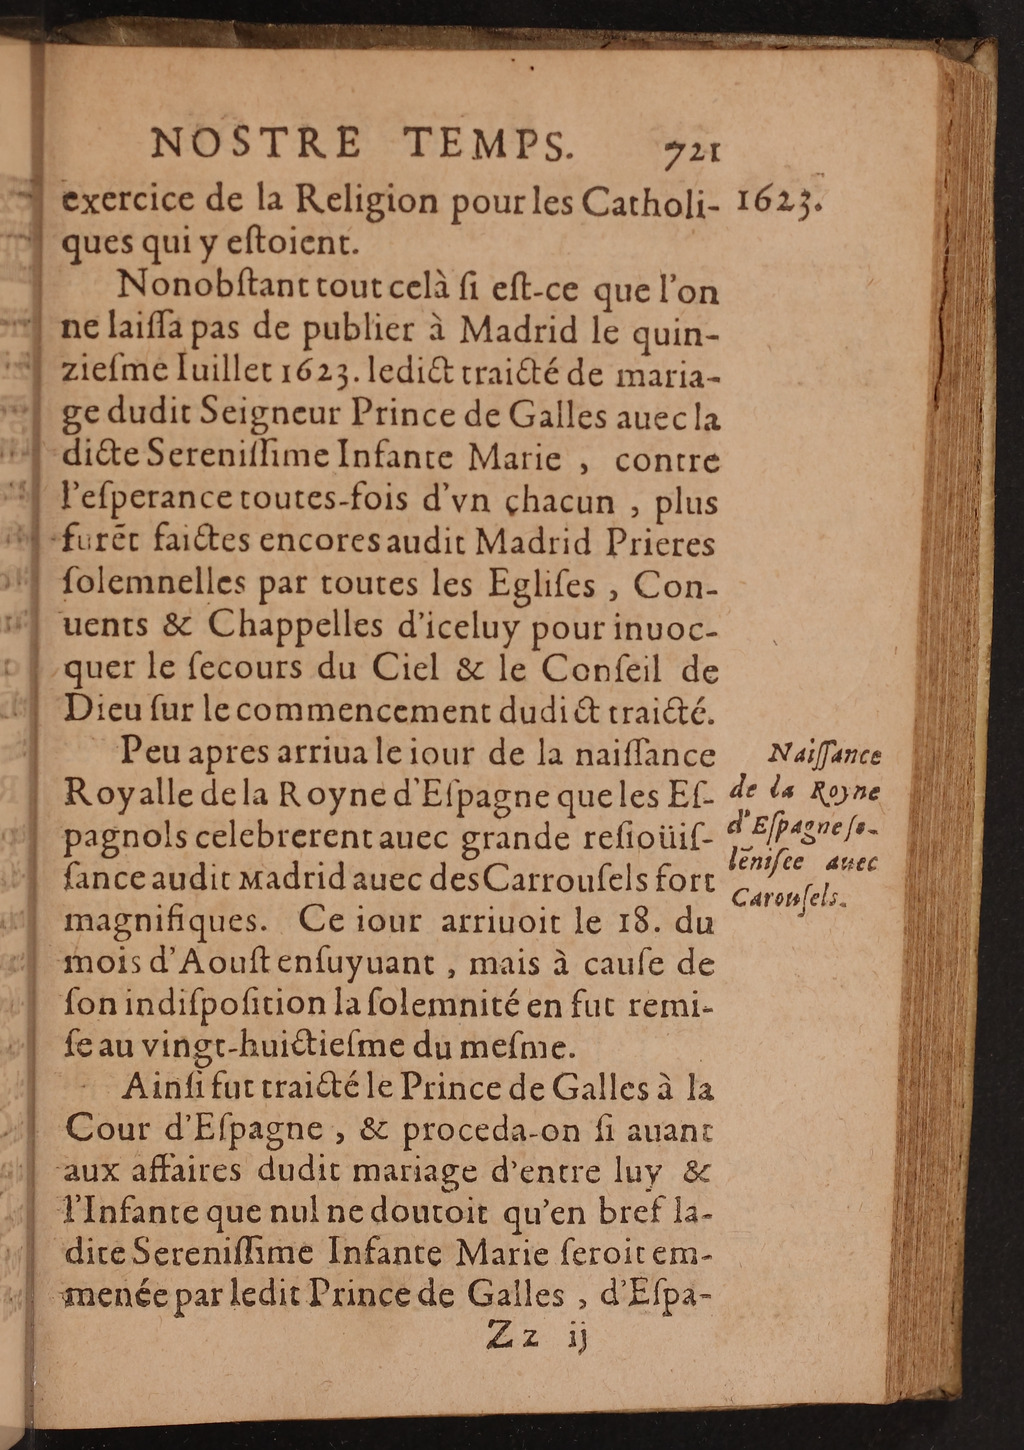 NOSTRE TEMPS. 721
exercice de la Religion pour les Catholi- 1623.
ques qui y eſtoient.
Nonobſtant tout celà ſi eſt-ce que l'on
ne laiſſa pas de publier à Madrid le quin-
zieſme Iuillet 1623. ledict traicté de maria-
ge dudit Seigneur Prince de Galles auec la
dicte Sereniſſime Infante Marie , contre
l'eſperance toutes-fois d'vn çhacun , plus
furẽt faictes encores audit Madrid Prieres
ſolemnelles par toutes les Egliſes , Con-
uents & Chappelles d'iceluy pour inuoc-
quer le ſecours du Ciel & le Conſeil de
Dieu ſur le commencement dudict traicté.
Peu apres arriua le iour de la naiſſance
Royalle de la Royne d'Eſpagne que les Eſ-
pagnols celebrerent auec grande reſioüiſ-
ſance audit Madrid auec des Carrouſels fort
magnifiques. Ce iour arriuoit le 18. du
mois d'Aouſt enſuyuant , mais à cauſe de
ſon indiſpoſition la ſolemnité en fut remi-
ſe au vingt-huictieſme du meſme.
Ainſi fut traicté le Prince de Galles à la
Cour d'Eſpagne , & proceda-on ſi auant
aux affaires dudit mariage d'entre luy &
l'Infante que nul ne doutoit qu'en bref la-
dite Sereniſſime Infante Marie ſeroit em-
menée par ledit Prince de Galles , d'Eſpa-
Zz ij
Naiſſance
de la Royne
d'Eſpagne ſo-
lẽniſee auec
Carouſels.